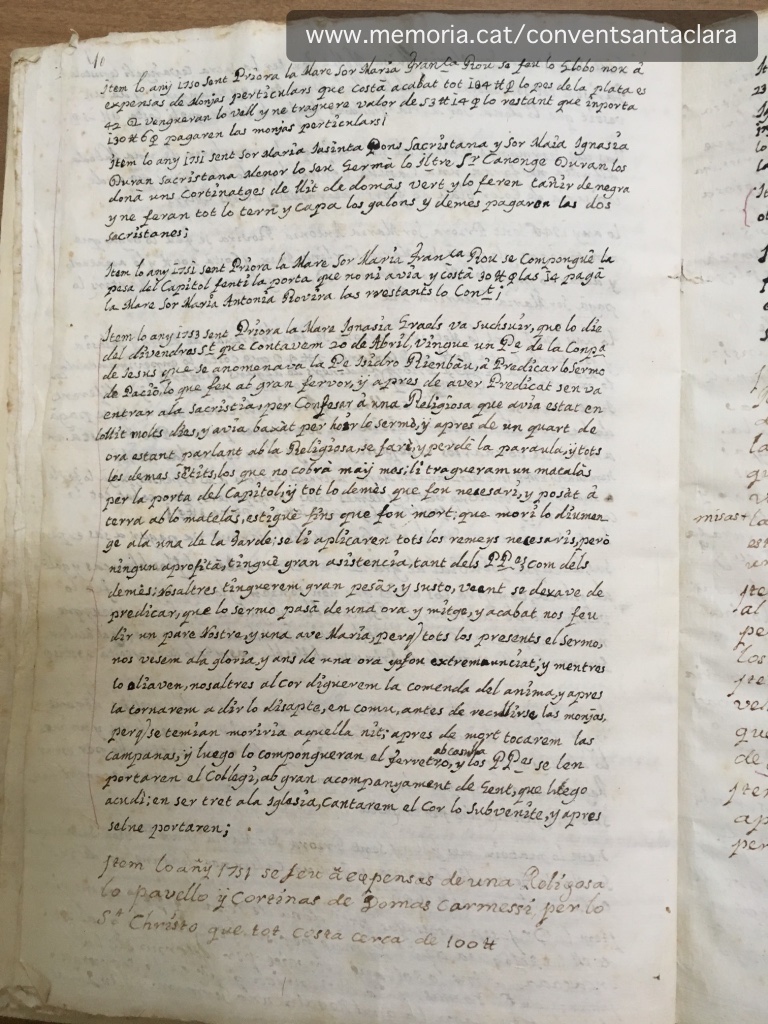 www.memoria.cat/conventsantaclara
Item lo any 1750 sent Priora la Mare Sor Maria Fran.ca Riou se feu lo Globo nou á
expensas de Monjas perticulars que costà acabat tot 184 ℔ lo pes de la plata es
42 venqueran lo Vell y ne tragueren valor de 53 ℔ 14 lo restant que inporta
130 ℔ 6 pagaren las monjas perticulars;
Item lo any 1751 sent Sor Maria Jasinta Pons Sacristana y Sor Maia Ignasia
Duran Sacristana Menor lo seu Germà lo Iltre Sr. Canonge Duran los
dona uns Cortinatges de llit de domàs vert y lo feren tañir de negra
y ne feran tot lo tern y Capa los galons y demes pagaren las dos
sacristanes;
Item lo any 1751 sent Priora la Mare Sor Maria Fran.ca Riou se Compongué la
pesa del Capitol fenti la porta que no ni avia y costà 30 ℔ las 14 pagà
la Mare Sor Maria Antonia Rovira las rrestants lo Cont;
Item lo any 1753 sent Priora la Mare Ignasia Graels va suchsuir, que lo die
del divendres St que contavem 20 de Abril, vingue un Pe de la Conpa
de Jesus que se anomenava la Pe Isidro Rienbàu, à Predicar lo Sermo
de Pacio, lo que feu ab gran fervor, y apres de aver Predicat sen va
entrar ala sacristia, per Confesar à una Religiosa que avia estat en
lo llit molts dies, y avia baxat per hoir lo sermó, y apres de un quart de
ora estant parlant ab la Religiosa, se farí, y perdé la paraula, y tots
los demas setits, los que no cobrà may mes; li tragueram un matalàs
per la porta del Capitol, y tot lo demès que fou necesari, y posàt à
terra ab lo matelàs, estigué fins que fon mort; que mori lo diumen
ge ala una de la tarde; se li aplicaren tots los remeys necesaris, però
ningun aprofità, tingué gran asistencia, tant dels PPes com dels
demès; Nosaltres tinguerem gran pesar, y susto, veent se dexave de
predicar, que lo sermo pasà de una ora y mitge, y acabat nos feu
dir un pare Nostre, y una ave Maria, perq tots los presents el Sermo,
nos vesem ala gloria, y ans de una ora ja fou extremunciat, y mentres
lo oliaven, nosaltres al Cor diguerem la comenda del anima, y apres
la tornarem a dir lo disapte, en comu, antes de recullirse las monjas,
perq se temian moriria aquella nit; apres de mort tocarem las
campanas, y luego lo compongueran el ferretro, ab casulla y los PPes se len
portaren el Collegi, ab gran acompanyament de Gent, que luego
acudi; en ser tret ala Iglesia, Cantarem el Cor lo Subvenite, y apres
selne portaren;
Item lo añy 1751 se feu à expensas de una Religosa
lo pavello y Cortinas de Domas Carmessi per lo
St Christo que tot costa cerca de 100 ℔
misas